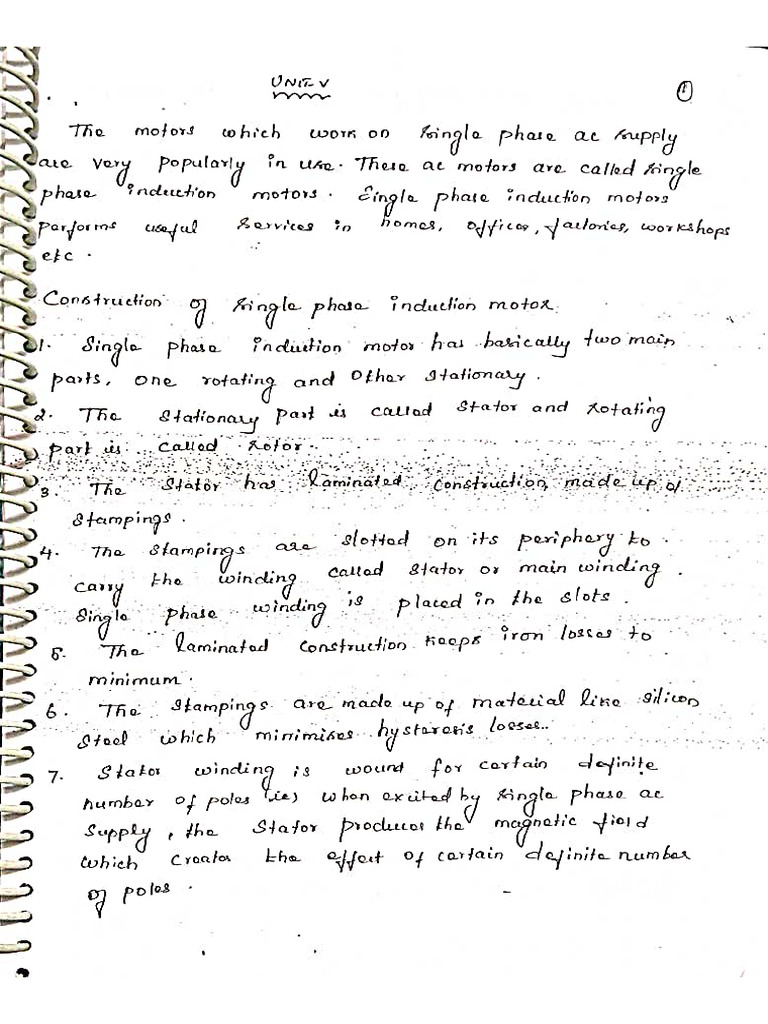 UNIT-V
1
The motors which work on single phase ac supply
are very popularly in use. These ac motors are called single
phase induction motors. Single phase induction motors
performs useful services in homes, offices, factories, workshops
etc.
Construction of single phase induction motor
1. Single phase induction motor has basically two main
parts, one rotating and other stationary.
2. The stationary part is called stator and rotating
part is called rotor.
3. The stator has laminated construction, made up of
stampings.
4. The stampings are slotted on its periphery to
carry the winding called stator or main winding.
Single phase winding is placed in the slots.
5. The laminated construction keeps iron losses to
minimum.
6. The stampings are made up of material like silicon
steel which minimises hysteresis losses.
7. Stator winding is wound for certain definite
number of poles (ie) when excited by single phase ac
supply, the stator produces the magnetic field
which creates the effect of certain definite number
of poles.